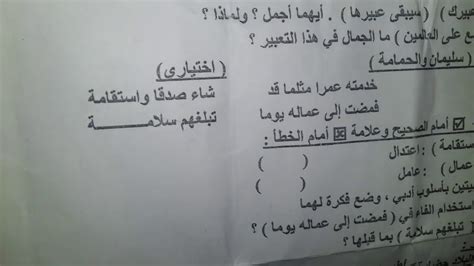 عبيرك ) ( سيبقى عبيرها ) . أيهما أجمل ؟ ولماذا ؟
ع على العالمين ) ما الجمال في هذا التعبير ؟
( سليمان والحمامة )
( اختيارى )
خدمته عمرا مثلما قد شاء صدقا واستقامة
فمضت إلى عماله يوما تبلغهم سلامـــة
☑ أمام الصحيح وعلامة ☒ أمام الخطأ :
ستقامة ) : اعتدال ( )
عمال ) : عامل ( )
بيتين بأسلوب أدبي ، وضع فكرة لهما
استخدام الفاء في ( فمضت إلى عماله يوما ) ؟
( تبلغهم سلامة ) بما قبلها ؟